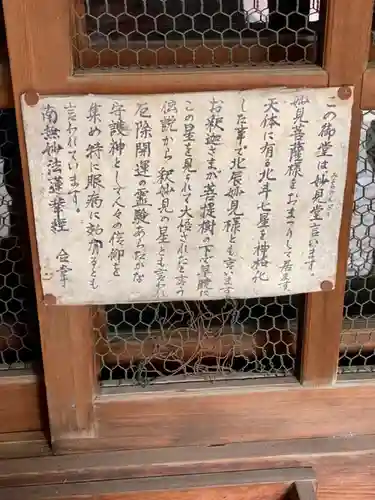 この御堂は妙見堂と言います
みょうけんどう
妙見菩薩様をおまつりして居ます
天体に有る北斗七星を神格化
した事で北辰妙見様とも言います
お釈迦さまが菩提樹の下で早暁に
この星を見られて大悟されたと言う
伝説から釈妙見の星とも言われ
厄除開運の霊験あらたかな
守護神として人々の信仰を
集め特に眼病に効有るとも
言われています。
南無妙法蓮華経 合掌